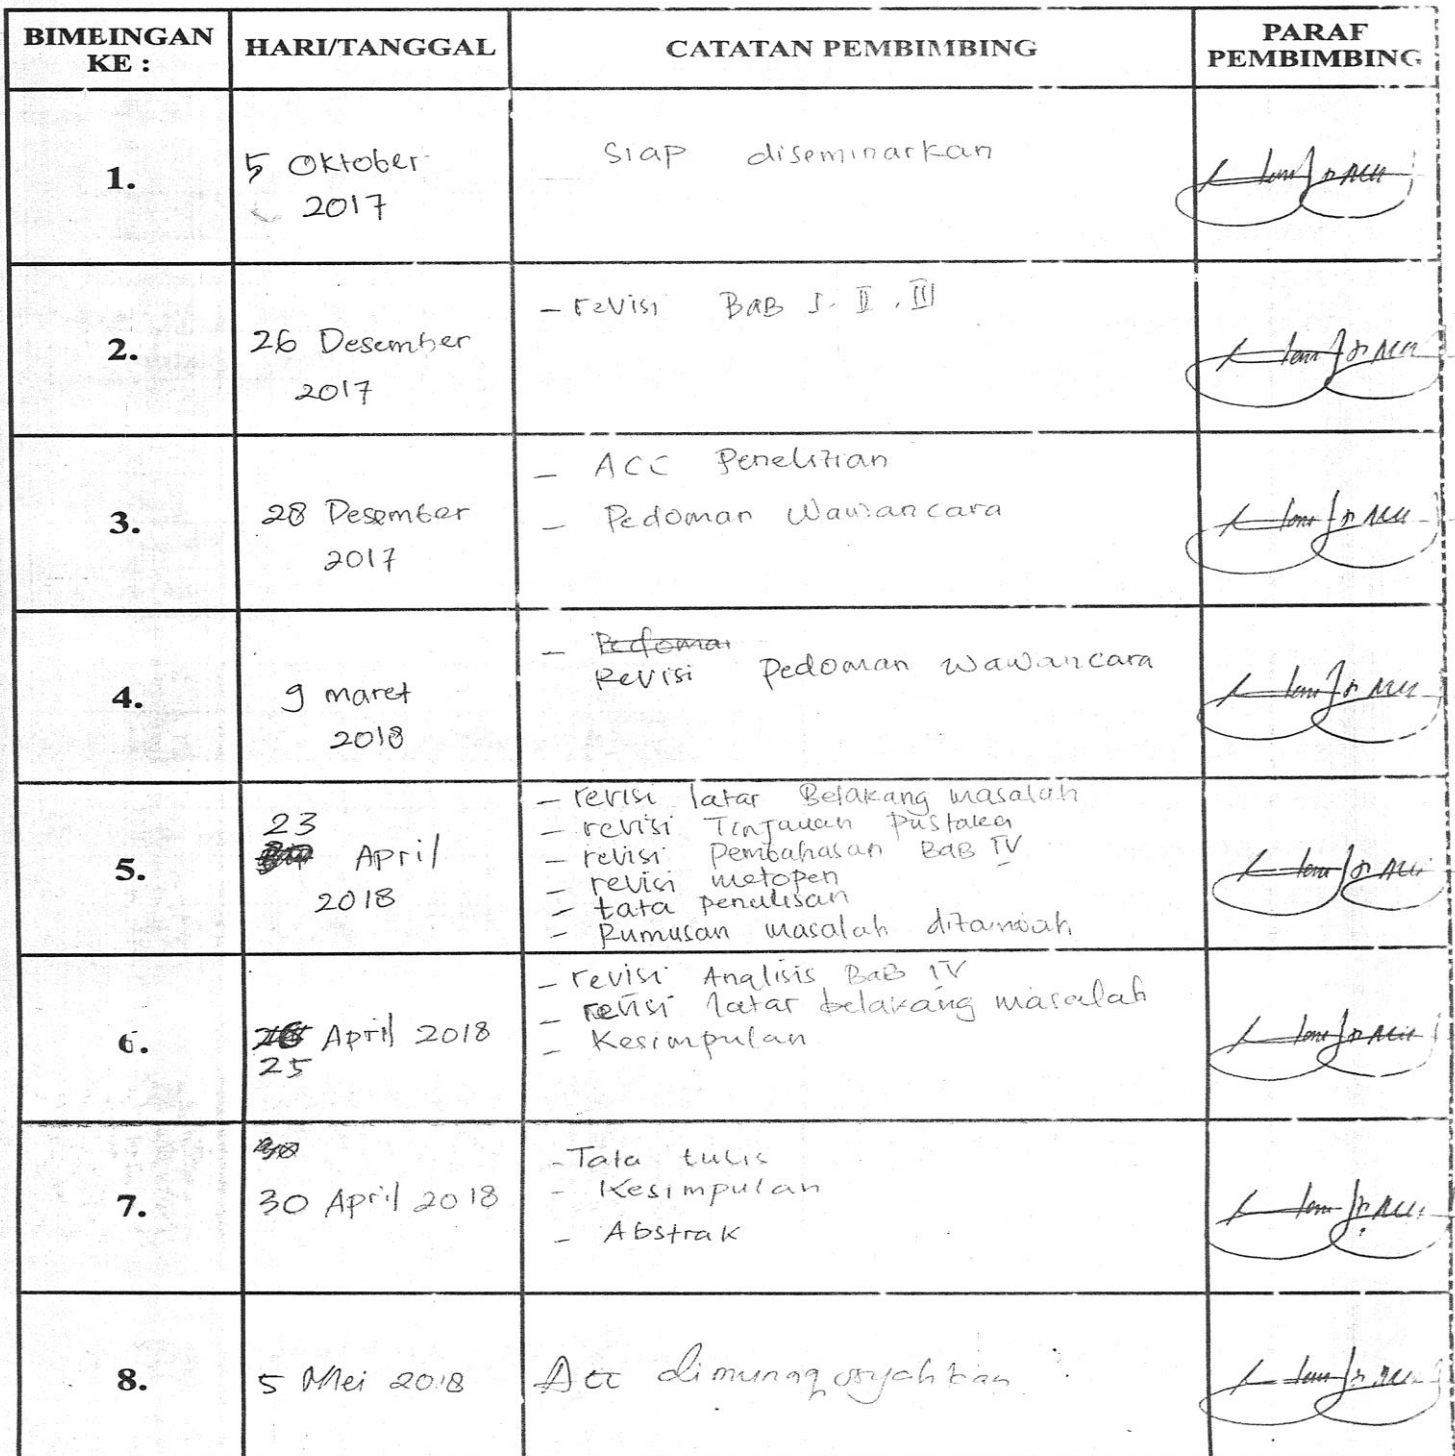 BIMBINGAN KE :
HARI/TANGGAL
CATATAN PEMBIMBING
PARAF PEMBIMBING
1.
5 Oktober
2017
Siap diseminarkan
2.
26 Desember
2017
- revisi BaB I. II . III
3.
28 Desember
2017
- ACC Penelitian
- Pedoman Wawancara
4.
9 maret
2018
- Pedoman
Revisi Pedoman wawancara
5.
23
April
2018
- revisi latar Belakang masalah
- revisi Tinjauan Pustaka
- revisi Pembahasan BaB IV
- revisi metopen
- tata penulisan
- Rumusan masalah ditambah
6.
April 2018
25
- revisi Analisis BaB IV
- revisi latar belakang masalah
- Kesimpulan
7.
30
30 April 2018
- Tata tulis
- Kesimpulan
- Abstrak
8.
5 Mei 2018
Acc dimunaqosyahkan